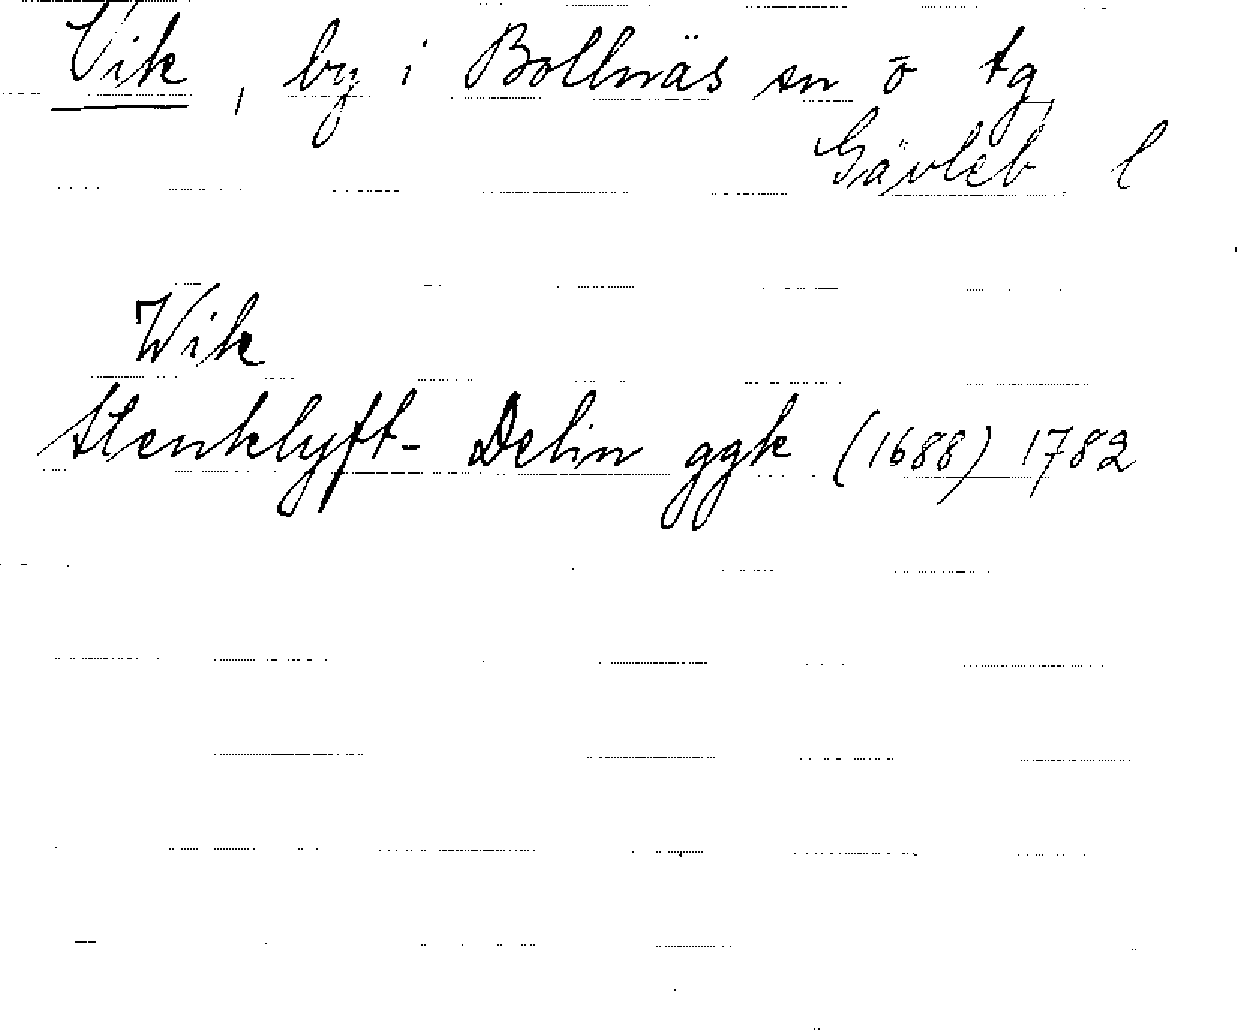 Vik, by i Bollnäs sn o tg
Gävleb l
Wik
Stenklyft- Delin ggk (1688) 1782